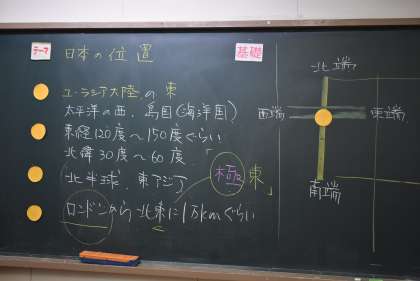 テーマ 日本の位置 基礎
ユーラシア大陸の東
太平洋の西、島国(海洋国)
東経120度〜150度ぐらい
北緯30度〜60度
北半球、東アジア 「極東」
ロンドンから北東に1万kmぐらい
北端
西端 東端
南端